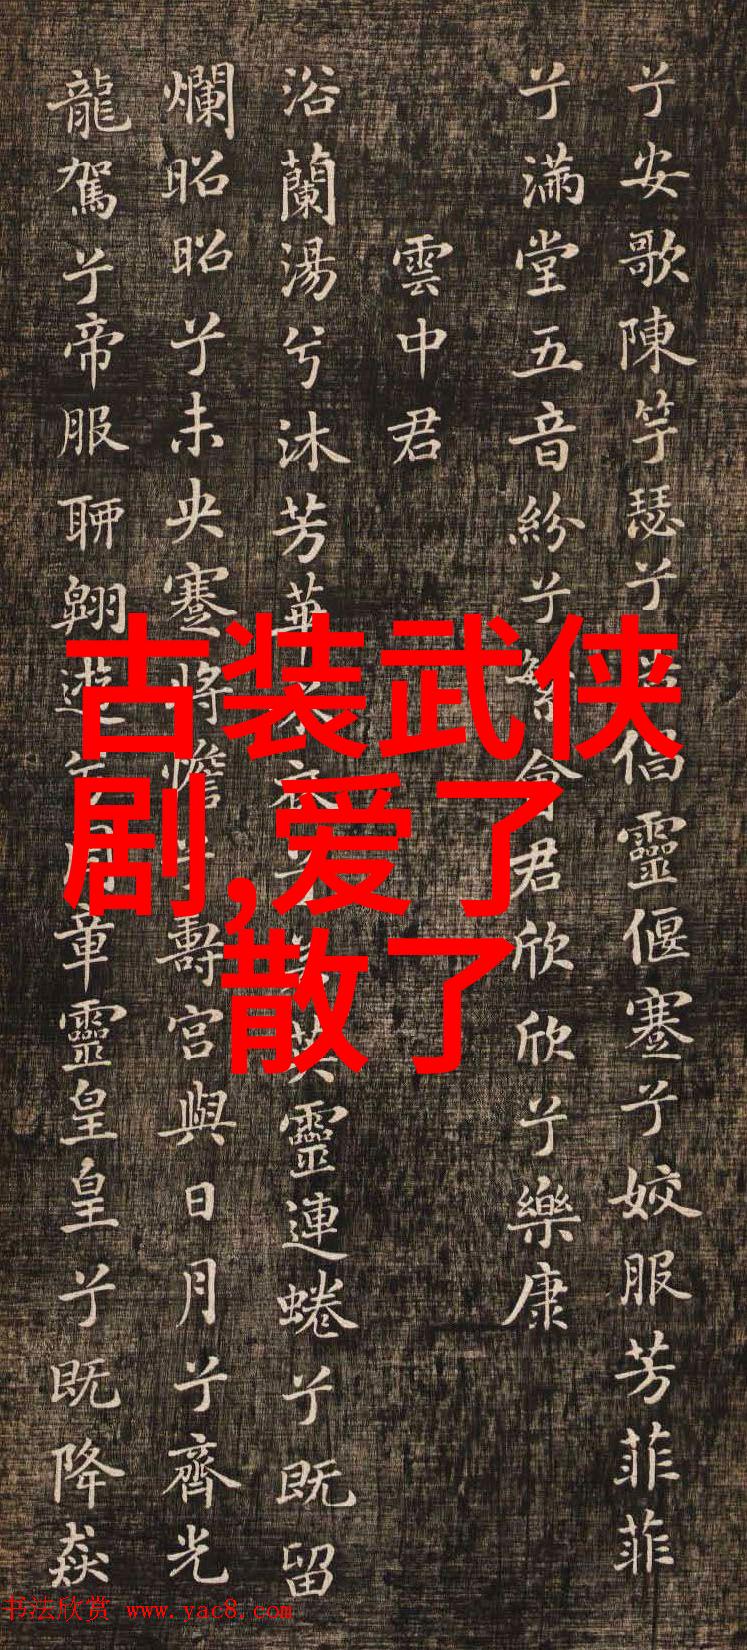 兮安歌陳竽瑟兮倡靈偃蹇兮姣服芳菲菲
兮滿堂五音紛兮繁會君欣欣兮樂康
雲中君
浴蘭湯兮沐芳華采衣兮若英靈連蜷兮既留
爛昭昭兮未央蹇將憺兮壽宮與日月兮齊光
龍駕兮帝服聊翱遊兮周章靈皇皇兮既降猋
古装武侠
剧,爱了
散了
书法欣赏 www.yac8.com